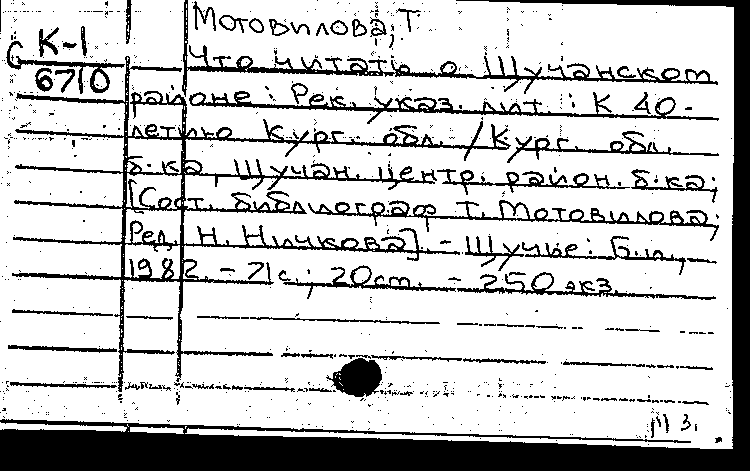 Мотовилова, Т
С К-1
6710
Что читать о Щучанском
районе: Рек. указ. лит.: К 40-
летию Кург. обл. / Кург. обл.
б-ка, Щучан. центр. район. б-ка;
[Сост. библиограф Т. Мотовилова;
Ред. Н. Ничкова]. - Щучье: Б.и.,
1982. - 21с.; 20см. - 250 экз.